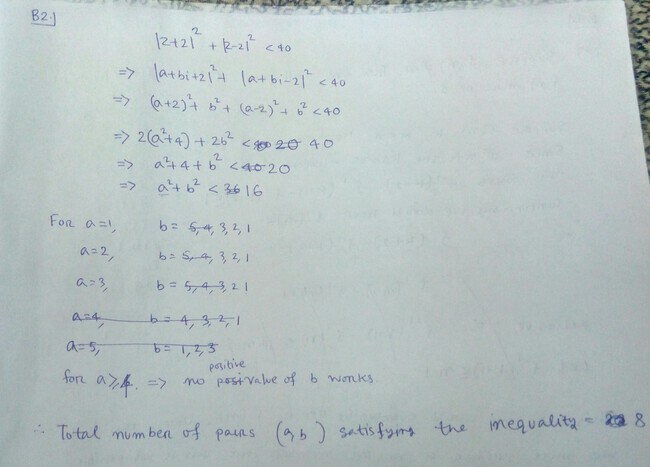 B2.)
|z+2|² + |z-2|² < 40
=> |a+bi+2|² + |a+bi-2|² < 40
=> (a+2)² + b² + (a-2)² + b² < 40
=> 2(a²+4) + 2b² < 20 40
=> a²+4+b² < 40 20
=> a²+b² < 36 16
For a=1, b = 5, 4, 3, 2, 1
a=2, b = 5, 4, 3, 2, 1
a=3, b = 5, 4, 3, 2 1
a=4, b = 4, 3, 2, 1
a=5, b = 1, 2, 3
positive
for a ≥ 4. => no value of b works.
∴ Total number of pairs (a, b) satisfying the inequality = 8